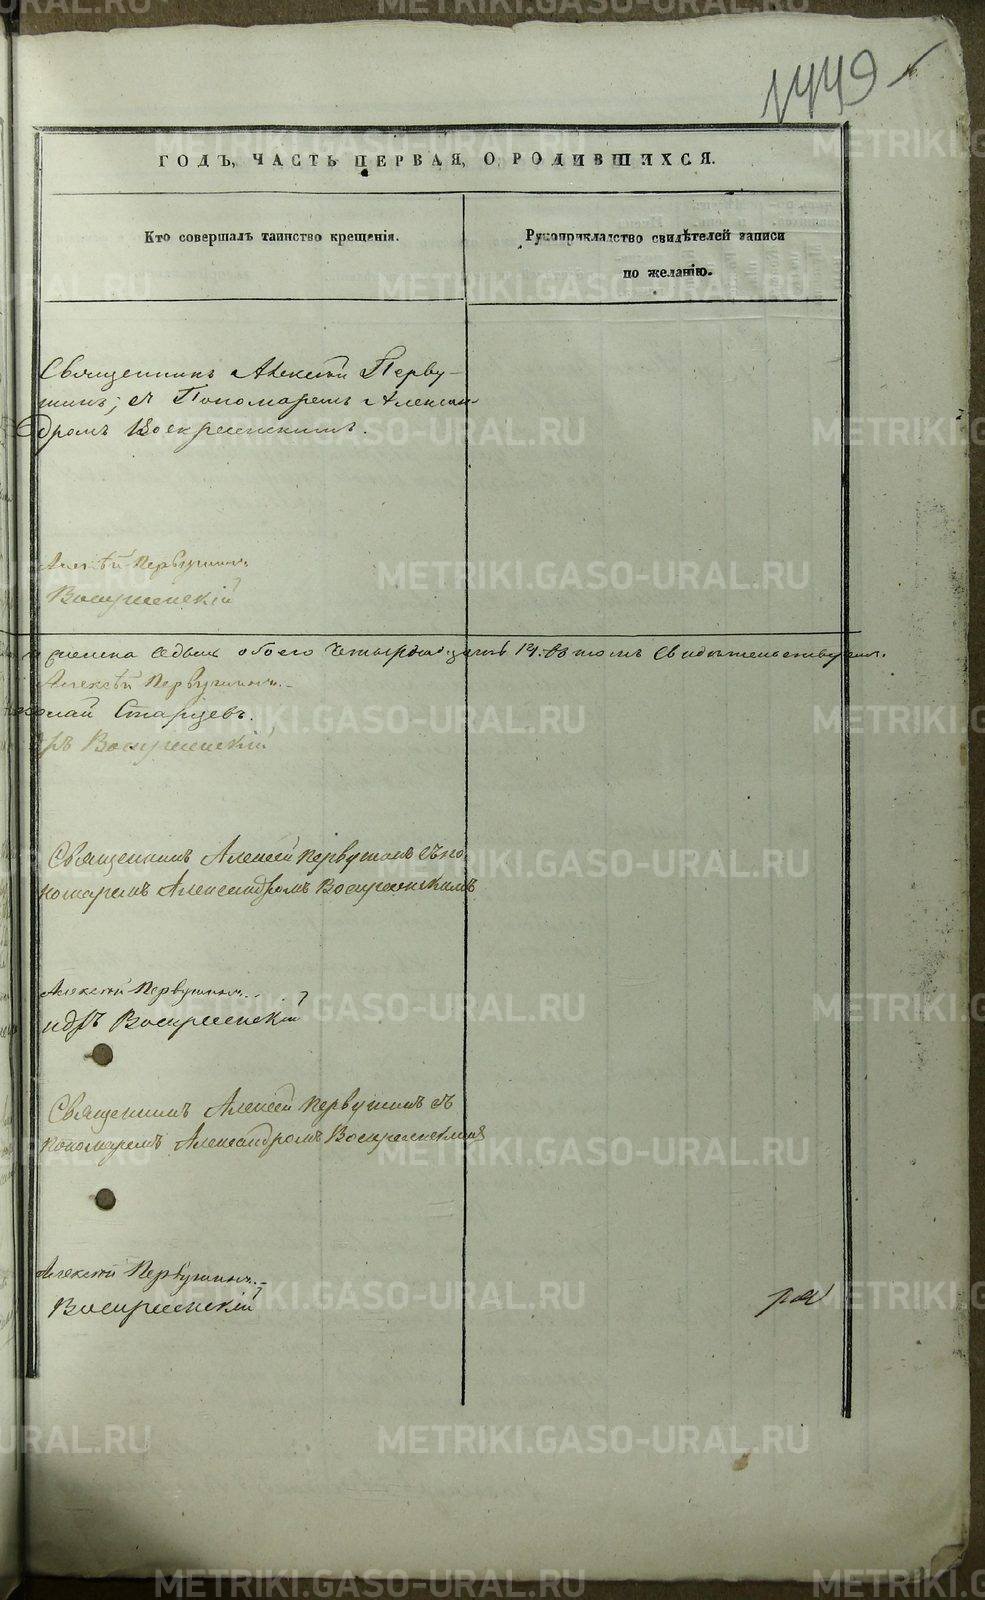 1449
ГОДЪ, ЧАСТЬ ПЕРВАЯ, О РОДИВШИХСЯ.
Кто совершалъ таинство крещенія.
Рукоприкладство свидѣтелей записи
по желанію.
Священникъ Алексѣй Перву-
шинъ; съ Пономаремъ Алексан-
дромъ Воскресенскимъ.
Алексѣй Первушинъ
Воскресенскій
седмь обоего четырнадцать 14. въ томъ свидѣтельствуемъ.
Алексѣй Первушинъ.
Николай Старцевъ.
дръ Воскресенскій
Священникъ Алексѣй Первушинъ съ по
номаремъ Александромъ Воскресенскимъ
Алексѣй Первушинъ
ндръ Воскресенскій
Священникъ Алексѣй Первушинъ съ
Пономаремъ Александромъ Воскресенскимъ
Алексѣй Первушинъ
Воскресенскій
METRIKI.GASO-URAL.RU